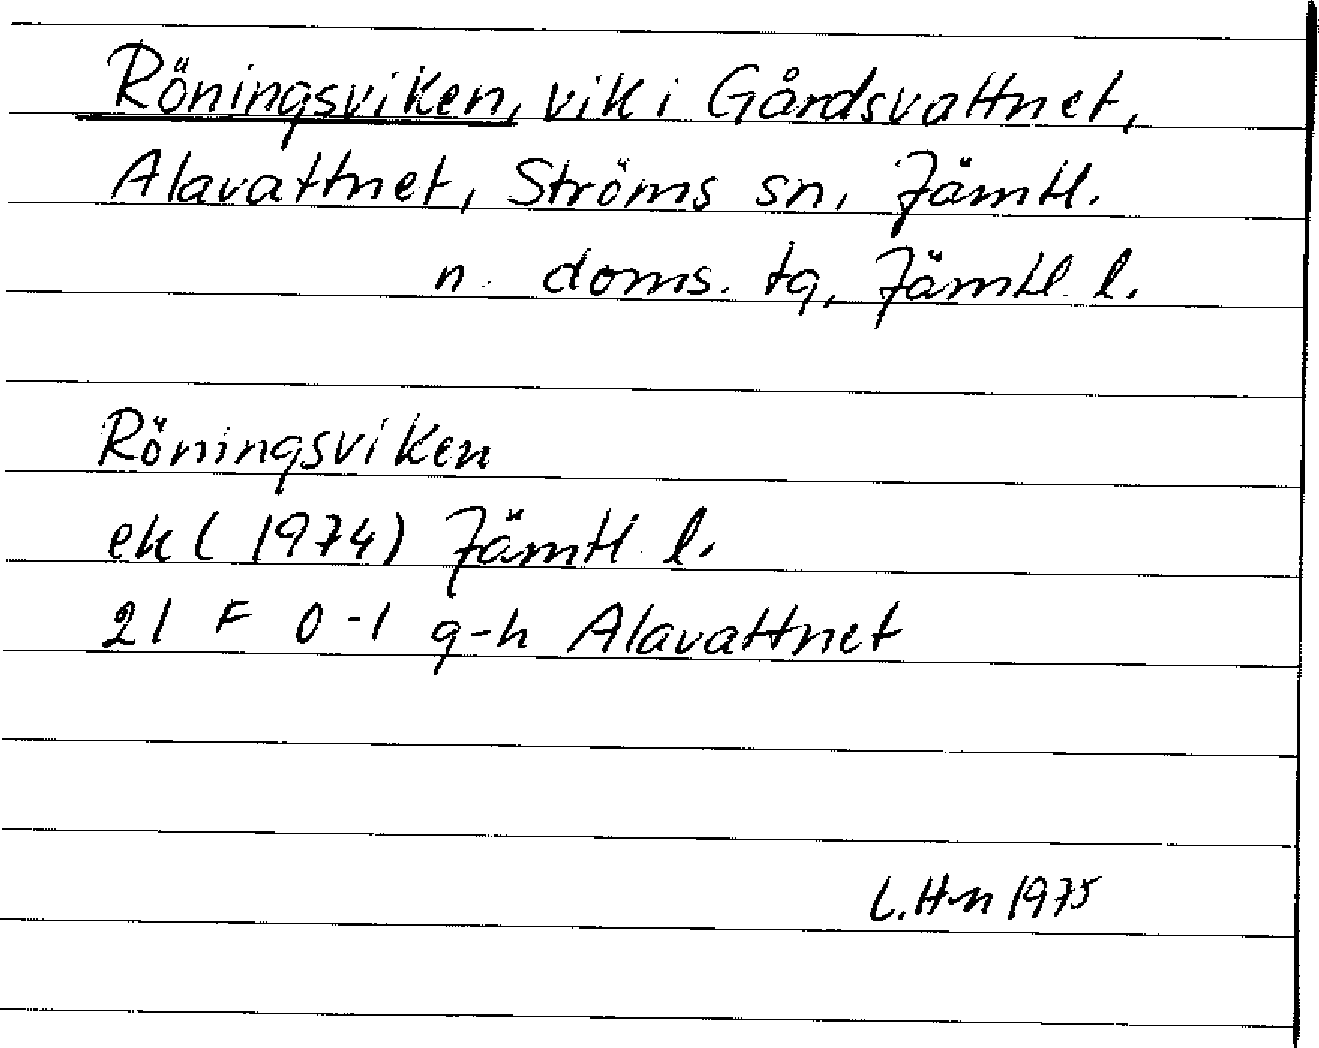 Röningsviken, vik i Gårdsvattnet,
Alavattnet, Ströms sn, Jämtl.
n. doms. tg, Jämtl. l.
Röningsviken
ek (1974) Jämtl. l.
21 F 0-1 g-h Alavattnet
L. H-n 1975